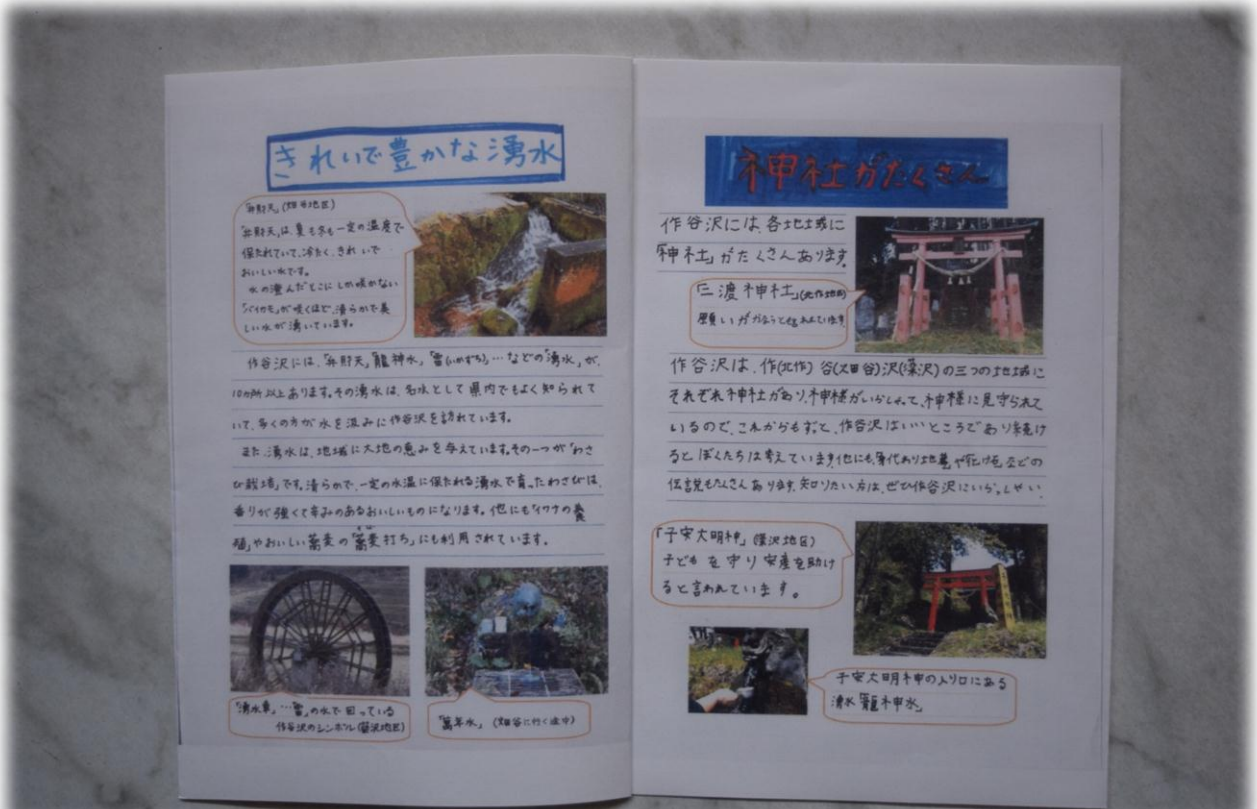 きれいで豊かな湧水
「弁財天」(畑谷地区)
「弁財天」は、夏も冬も一定の温度で
保たれていて、冷たく、きれいで
おいしい水です。
水の澄んだとこにしか咲かない
「バイカモ」が咲くほど、清らかで美
しい水が湧いています。
作谷沢には、「弁財天」「龍神水」「雷(いかずち)」…などの「湧水」が、
10か所以上あります。その湧水は、名水として県内でもよく知られて
いて、多くの方が水を汲みに作谷沢を訪れています。
また、湧水は、地域に大地の恵みを与えています。その一つが「わさ
び栽培」です。清らかで、一定の水温に保たれる湧水で育ったわさびは、
香りが強くて辛みのあるおいしいものになります。他にも「イワナの養
殖」やおいしい蕎麦の「蕎麦打ち」にも利用されています。
「湧水車」…「雷」の水で回っている
作谷沢のシンボル(簗沢地区)
「萬年水」(畑谷に行く途中)
神社がたくさん
作谷沢には、各地域に
「神社」がたくさんあります。
「二渡神社」(北作地区)
願いがかなうと伝えられています。
作谷沢は、作(北作)谷(畑谷)沢(簗沢)の三つの地域に
それぞれ神社があり、神様がいらしゃって、神様に見守られて
いるので、これからもずっと、作谷沢はいいところであり続け
るとぼくたちは考えています。他にも、身代わり地蔵や化け石などの
伝説もたくさんあります。知りたい方は、ぜひ作谷沢にいらっしゃい。
「子安大明神」(簗沢地区)
子どもを守り安産を助け
ると言われています。
子安大明神の入り口にある
湧水「龍神水」